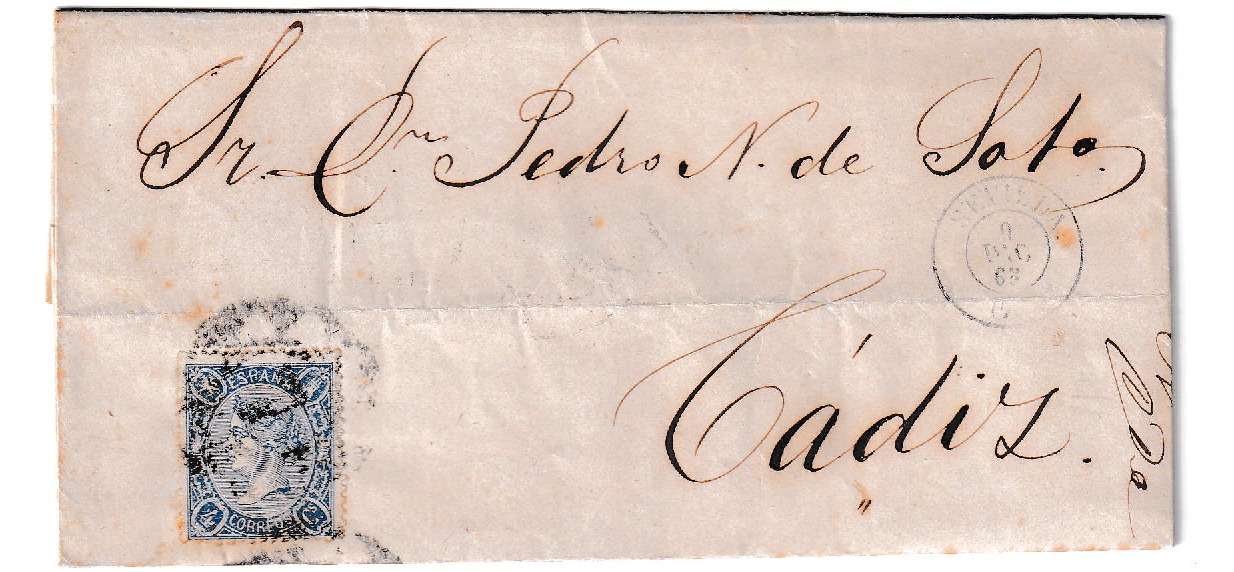 Sr. Dn Pedro N. de Soto.
SEVILLA.
9
DIC.
65
Cádiz.
ESPAÑA
CORREOS
4 Cs